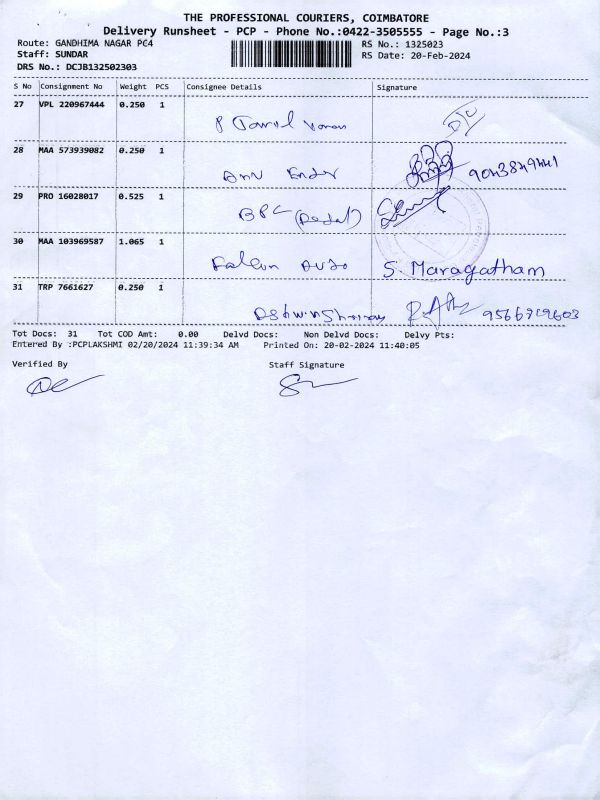 THE PROFESSIONAL COURIERS, COIMBATORE
Delivery Runsheet - PCP - Phone No.:0422-3505555 - Page No.:3
Route: GANDHIMA NAGAR PC4 RS No.: 1325023
Staff: SUNDAR RS Date: 20-Feb-2024
DRS No.: DCJB132502303
S No Consignment No Weight PCS Consignee Details Signature
27 VPL 220967444 0.250 1
P
28 MAA 573939082 0.250 1
29 PRO 16028017 0.525 1
BPC
30 MAA 103969587 1.065 1
Falcon Auto S. Maragatham
31 TRP 7661627 0.250 1
Tot Docs: 31 Tot COD Amt: 0.00 Delvd Docs: Non Delvd Docs: Delvy Pts:
Entered By :PCPLAKSHMI 02/20/2024 11:39:34 AM Printed On: 20-02-2024 11:40:05
Verified By Staff Signature